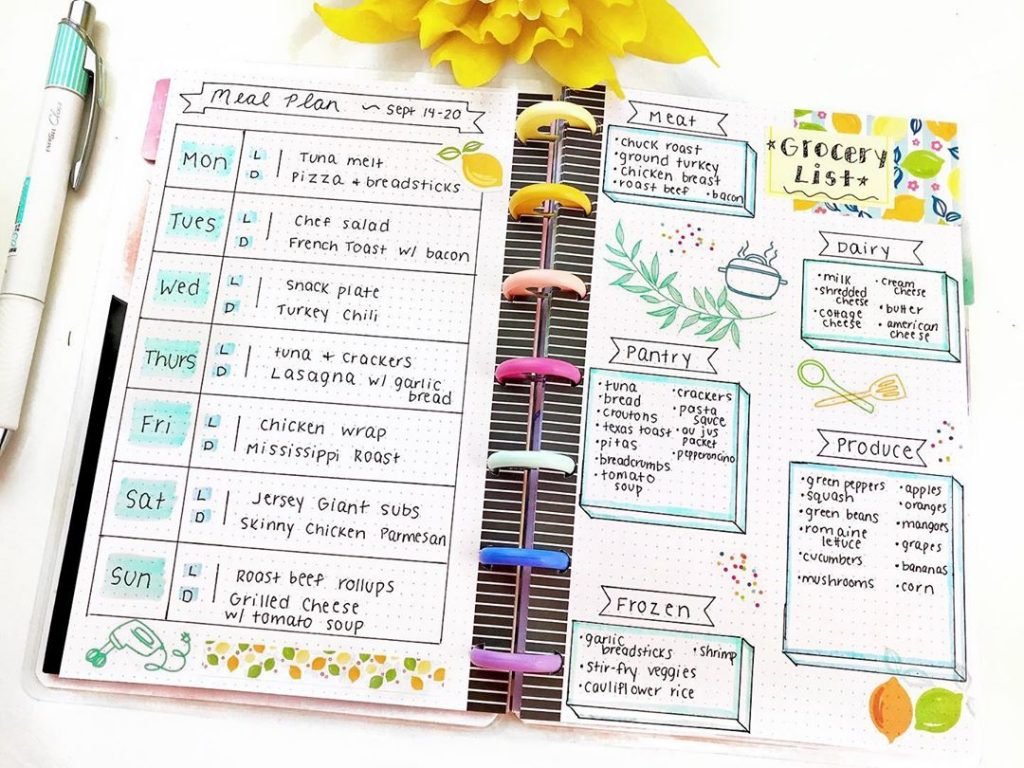 Meal Plan ~ Sept 14-20
Mon
L
D
Tuna melt
Pizza + breadsticks
Tues
L
D
Chef salad
French Toast w/ bacon
Wed
L
D
snack plate
Turkey Chili
Thurs
L
D
tuna + crackers
Lasagna w/ garlic
bread
Fri
L
D
chicken wrap
Mississippi Roast
Sat
L
D
Jersey Giant subs
Skinny Chicken Parmesan
Sun
L
D
Roast beef rollups
Grilled Cheese
w/ tomato soup
Grocery
List
Meat
• chuck roast
• ground turkey
• chicken breast
• roast beef • bacon
Dairy
• milk
• shredded
cheese
• cottage
cheese
• cream
cheese
• butter
• american
cheese
Pantry
• tuna
• bread
• croutons
• texas toast
• pitas
• breadcrumbs
• tomato
soup
• crackers
• pasta
sauce
• au jus
packet
• pepperoncino
Produce
• green peppers
• squash
• green beans
• romaine
lettuce
• cucumbers
• mushrooms
• apples
• oranges
• mangoes
• grapes
• bananas
• corn
Frozen
• garlic
breadsticks
• stir-fry veggies
• cauliflower rice
• shrimp